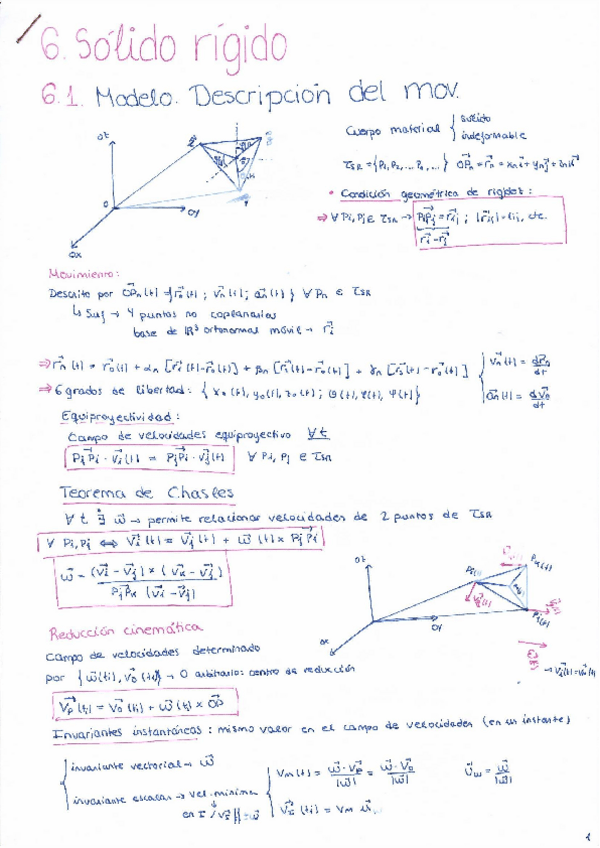 6. Sólido rígido
6.1. Modelo. Descripción del mov.
Cuerpo material { sólido
indeformable
τSR = {P1, P2, ... Pn, ...} OPn = rn = xn i + yn j + zn k
• Condición geométrica de rigidez:
⇒ ∀ Pi, Pj ∈ τSR → PiPj = rij ; |rij| = lij, etc.
ri - rj
Oz
O
Oy
Ox
Movimiento:
Descrito por OPn(t) = {rn(t); vn(t); an(t)} ∀ Pn ∈ τSR
↳ Suf → 4 puntos no coplanarios
base de IR³ ortonormal móvil → ri
⇒ rn(t) = r0(t) + αn [ri(t) - r0(t)] + βn [rj(t) - r0(t)] + γn [rk(t) - r0(t)] { vn(t) = drn/dt
an(t) = dvn/dt
⇒ 6 grados de libertad: {x0(t), y0(t), z0(t); θ(t), φ(t), ψ(t)}
Equiproyectividad:
Campo de velocidades equiproyectivo ∀t
PiPj · vi(t) = PiPj · vj(t) ∀ Pi, Pj ∈ τSR
Teorema de Chasles
∀ t ∃ ω → permite relacionar velocidades de 2 puntos de τSR
∀ Pi, Pj ⇔ vi(t) = vj(t) + ω(t) × PjPi
ω = (vi - vj) × (vk - vj) / PjPk (vi - vj)
Oz
Oy
Ox
Reducción cinemática
Campo de velocidades determinado
por {ω(t), v0(t)} → O arbitrario: centro de reducción
vP(t) = v0(t) + ω(t) × OP
Invariantes instantáneos: mismo valor en el campo de velocidades (en un instante)
{ invariante vectorial → ω
invariante escalar → vel. mínima
en I / vI ∥ ω
{ Vm(t) = ω·vP/|ω| = ω·v0/|ω| uω = ω/|ω|
vI(t) = Vm uω
1